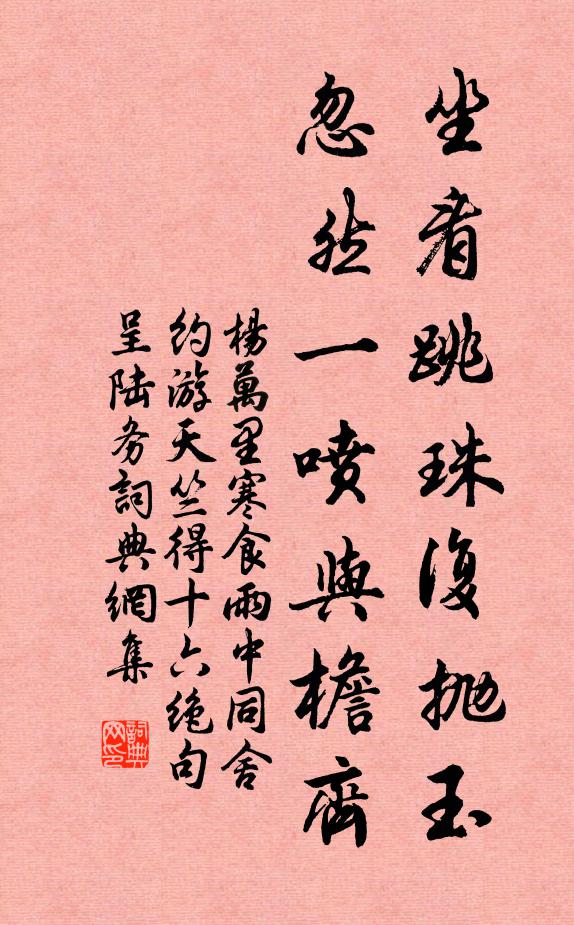 坐看跳珠復拋玉
忽然一噴與檐齊
楊萬里寒食雨中同舍
約游天竺得十六絕句
呈陆务詞典網集
詞典
网印